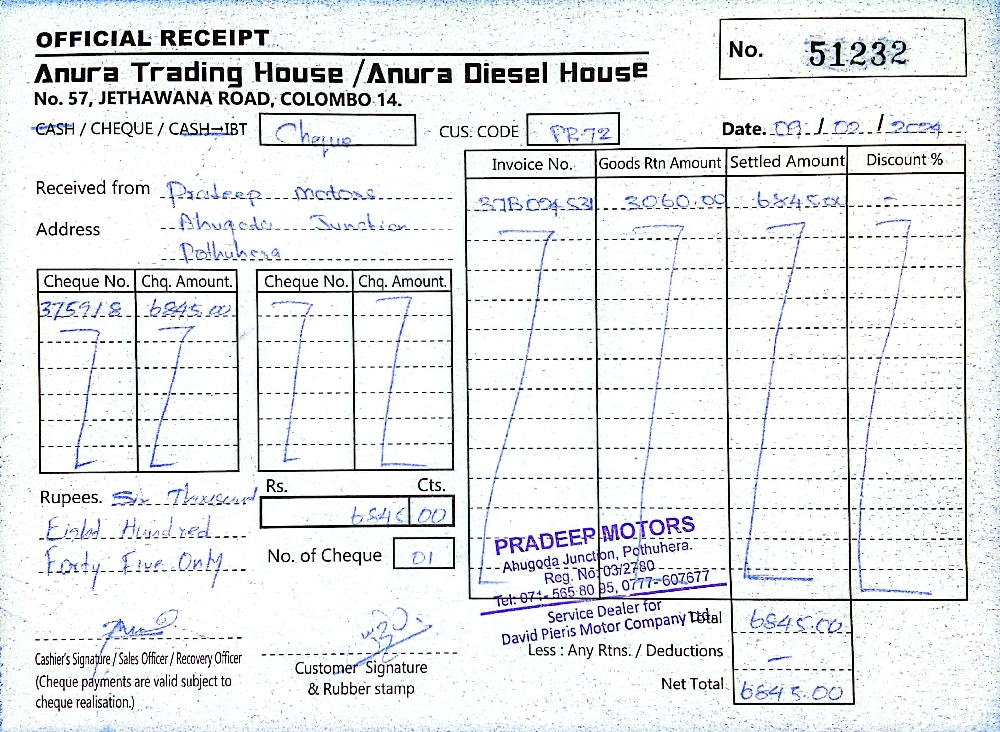 OFFICIAL RECEIPT
Anura Trading House /Anura Diesel House
No. 57, JETHAWANA ROAD, COLOMBO 14.
No. 51232
CASH / CHEQUE / CASH-IBT Cheque
CUS. CODE PR72
Date. 09 / 02 / 2024
Received from Pradeep Motors
Address Ahugoda Junction
Pothuhera
Invoice No. Goods Rtn Amount Settled Amount Discount %
3060.00 6845.00 -
Cheque No. Chq. Amount. Cheque No. Chq. Amount.
375918 6845.00
Rupees. Six Thousand
Eight Hundred
Forty Five Only
Rs. Cts.
6845 00
No. of Cheque 01
PRADEEP MOTORS
Ahugoda Junction, Pothuhera.
Reg. No: 03/2780
Tel: 071- 565 80 95, 0777-607677
Service Dealer for
David Pieris Motor Company Ltd.
Total 6845.00
Less : Any Rtns. / Deductions -
Net Total 6845.00
Cashier's Signature / Sales Officer / Recovery Officer
(Cheque payments are valid subject to
cheque realisation.)
Customer Signature
& Rubber stamp